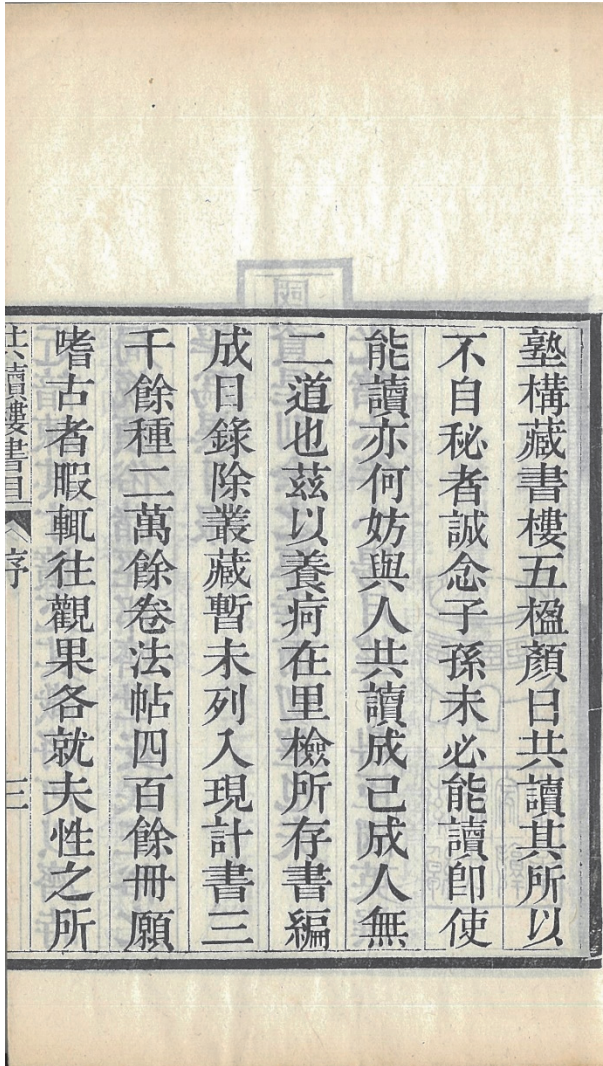 塾構藏書樓五楹顏曰共讀其所以
不自秘者誠念子孫未必能讀卽使
能讀亦何妨與人共讀成己成人無
二道也茲以養疴在里檢所存書編
成目錄除叢藏暫未列入現計書三
千餘種二萬餘卷法帖四百餘冊願
嗜古者暇輒往觀果各就夫性之所
共讀樓書目
序
三